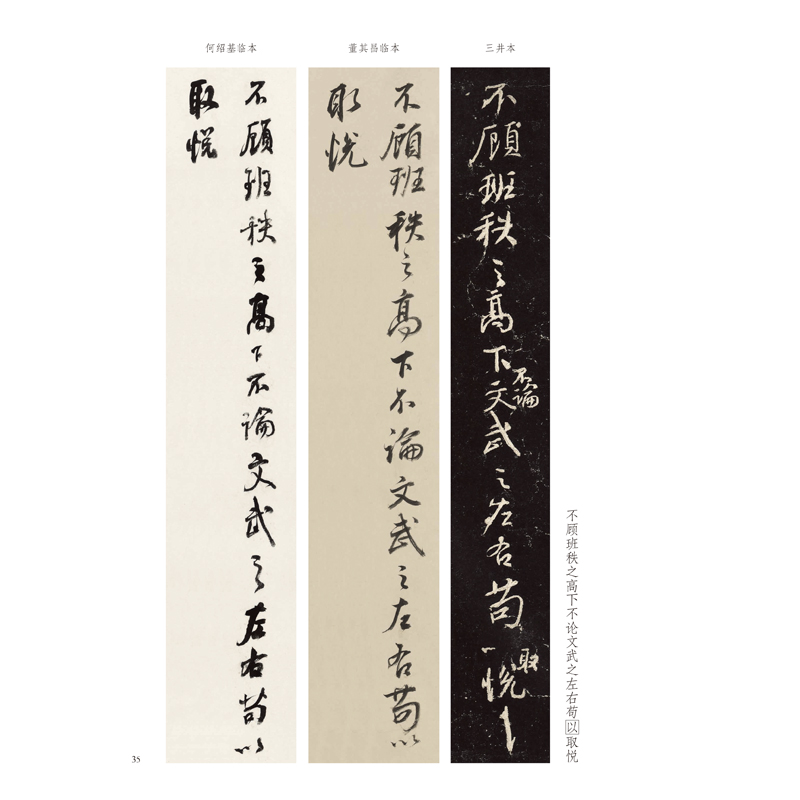 三井本
董其昌临本
何绍基临本
不顾班秩之高下不论文武之左右苟以取悦
不顧班秩之高下文武之左右苟
不論
取悦
不顧班秩之高下不論文武之左右苟以
取悦
不顧班秩之高下不論文武之左右苟以
取悦
35